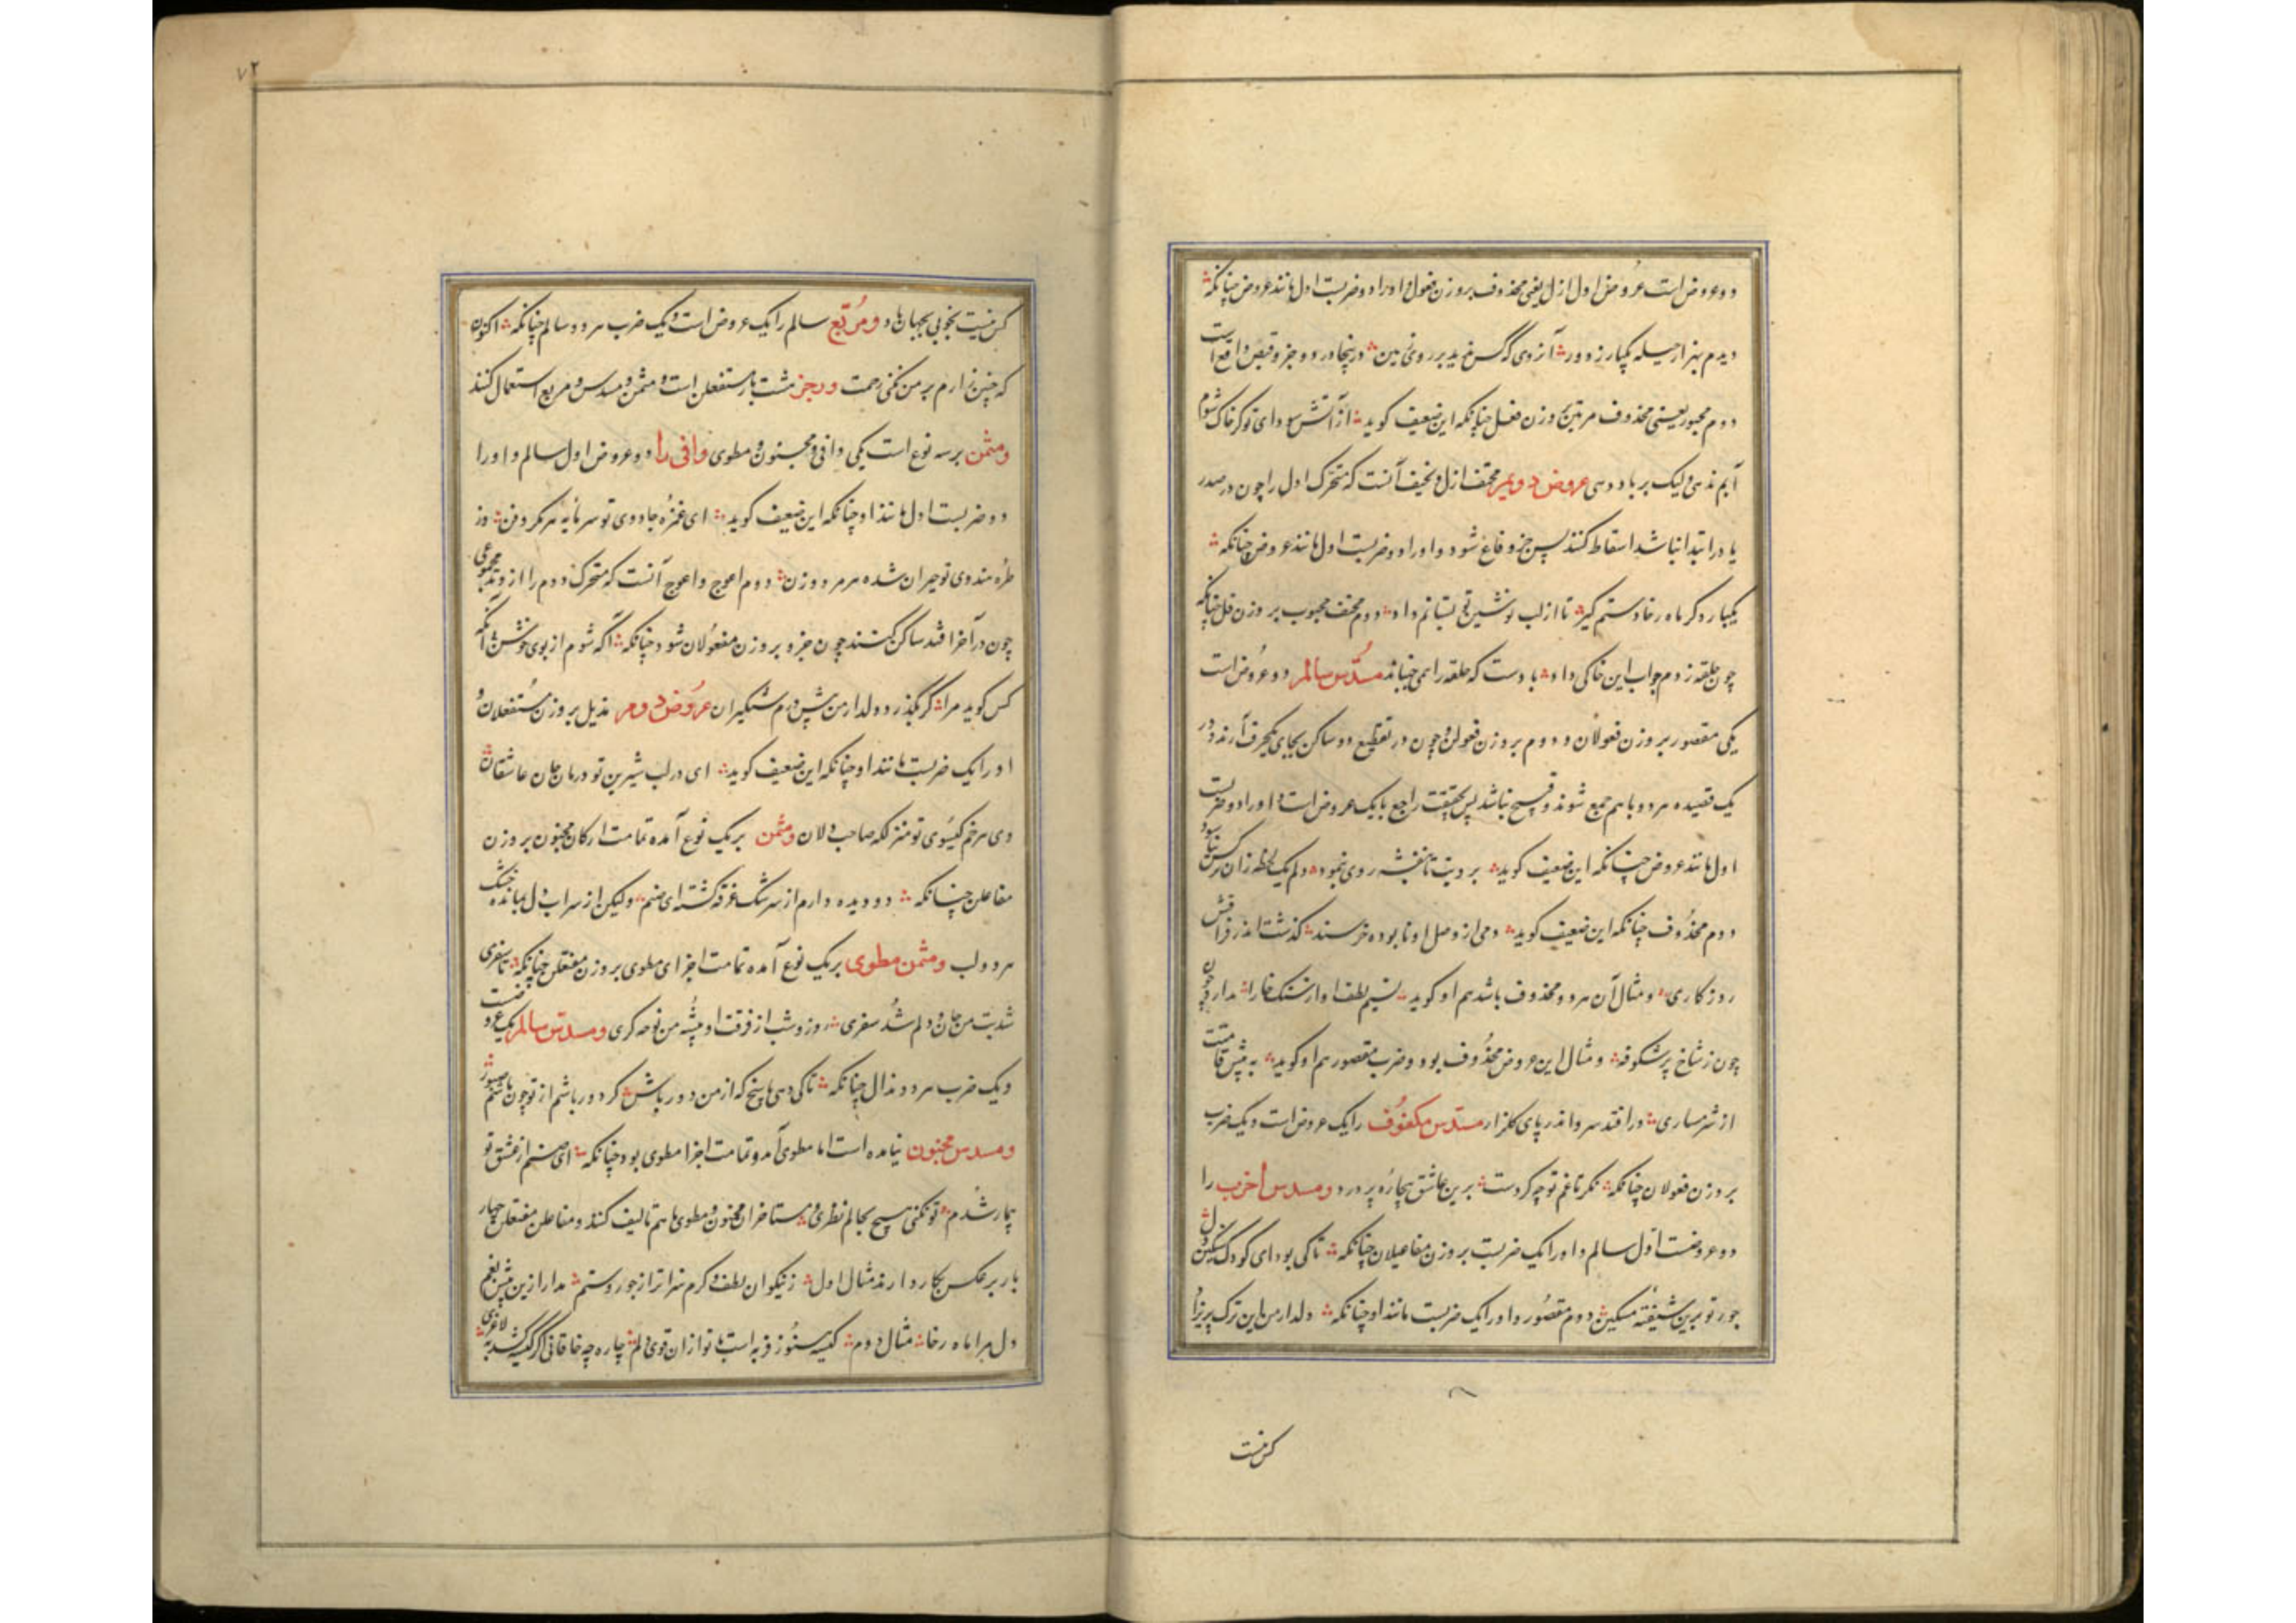 دو عروض است عروض اول ازل یعنی محذوف بر وزن فعول و او را دو ضربست اول مانند عروض چنانکه
دیدم بهزار حیله یکبار ز دور آن روی که گس ندید بر روی زمین در پنجا در دو جزو قبض واقع است
دوم مجبوب یعنی محذوف مرتین بر وزن فعل چنانکه این ضعیف گوید از آتش سودای تو گر خاک شوم
آبم ندهی ولیک بر باد دهی عروض دویم مخنف ازل و تخنیف آنست که متحرک اول را چون در صدر
یا در ابتدا نباشد اسقاط کنند پس جزو فاع شود و او را دو ضربست اول مانند عروض چنانکه
یکبار دگر ماه رخا دستم گیر تا از لب نوشین تو بستانم داد دوم مخنف مجبوب بر وزن فل چنانکه
چون حلقه زدم جواب این خاکی داد بادست که حلقه را همی جنباند مسدس سالم دو عروض است
یکی مقصور بر وزن فعولان و دوم بر وزن فعولن و چون در تقطیع دو ساکن بجای یکحرف آرند در
یک قصیده هر دو با هم جمع شوند و قبیح نباشد پس بحقیقت راجع با یک عروض است و او را دو ضربست
اول مانند عروض چنانکه این ضعیف گوید برویت تا بنفشه روی نمود دلم یک لحظه زان نرگس نیاسود
دوم محذوف چنانکه این ضعیف گوید دمی از وصل او نابوده خرسند گذشت اندر فراقش
روزگاری و مثال آن هر دو محذوف باشد هم او گوید نسیم لطف او از سنگ خارا مدارد چون
چون ز شاخ پرشکوفه و مثال این عروض محذوف بود و ضرب مقصور هم او گوید به پیش قامتت
از شرمساری درافتد سرو اندر پای گلزار مسدس مکفوف را یک عروض است و یک ضرب
بر وزن فعولان چنانکه نگر تا غم تو چه کردست برین عاشق بیچاره پر درد و مسدس اخرب را
دو عروضست اول سالم و او را یک ضربست بر وزن مفاعیلان چنانکه تا کی بود ای کودک سنگین دل
جور تو برین شیفته مسکین دوم مقصور و او را یک ضربست مانند او چنانکه دلدار من این ترک پریزاد
کس نیست
۷۲
کس نیست بخوبی بجهان هاد و مربع سالم را یک عروض است و یک ضرب هر دو سالم چنانکه اکنون
که چنین زارم بر من نکنی رحمت و رجز هشت بار مستفعلن است و مثمن و مسدس و مربع استعمال کنند
و مثمن بر سه نوع است یکی وافی و مخبنون و مطوی وافی را دو عروض اول سالم و او را
دو ضربست اول مانند او چنانکه این ضعیف گوید ای غمزه جادوی تو سرمایه هر مکر و فن وز
طره هندوی تو حیران شده هر مرد و زن دوم اعوج و اعوج آنست که متحرک دوم را از وتد مجموعی
چون در آخر افتد ساکن کنند چون جزو بر وزن مفعولان شود چنانکه آگه شوم از بوی خوشش آنکه
کس گوید مرا گر بگذرد دلدار من پیش درم شبگیران عروض دوم مذیل بر وزن مستفعلان و
او را یک ضربست مانند او چنانکه این ضعیف گوید ای در لب شیرین تو درمان جان عاشقان
وی هر خم گیسوی تو منزلگه صاحب دلان و مثمن بر یک نوع آمده تمامت ارکان مخبنون بر وزن
مفاعلن چنانکه دو دیده دارم از سرشک غرقه گشته ای صنم ولیکن از سراب دل بمانده خشک
هر دو لب و مثمن مطوی بر یک نوع آمده تمامت اجزای مطوی بر وزن مفتعلن چنانکه تا سفری
شد بت من جان و دلم شد سفری روز و شب از فرقت او پیشه من نوحه گری و مسدس سالم یک عروضست
و یک ضرب هر دو مذال چنانکه تا کی دهی پاسخ که از من دور باش گر دور باشم از تو چون باشم صبور
و مسدس مخبنون نیامده است اما مطوی آمد و تمامت اجزا مطوی بود چنانکه ای صنم از عشق تو
بیمار شدم تو نکنی هیچ بحالم نظری و متاخران مخبون و مطوی با هم تالیف کنند و مفاعلن مفتعلن چهار
بار بر عکس بکار دارند مثال اول ز نیکوان لطف و کرم سزاتر از جور و ستم مدار ازین پیش بغم
دل مرا ماه رخا مثال دوم کیسه هنوز فربه است با تو از ان قوی دلم چاره چه خاقانی اگر کیسه رسد به لاغری